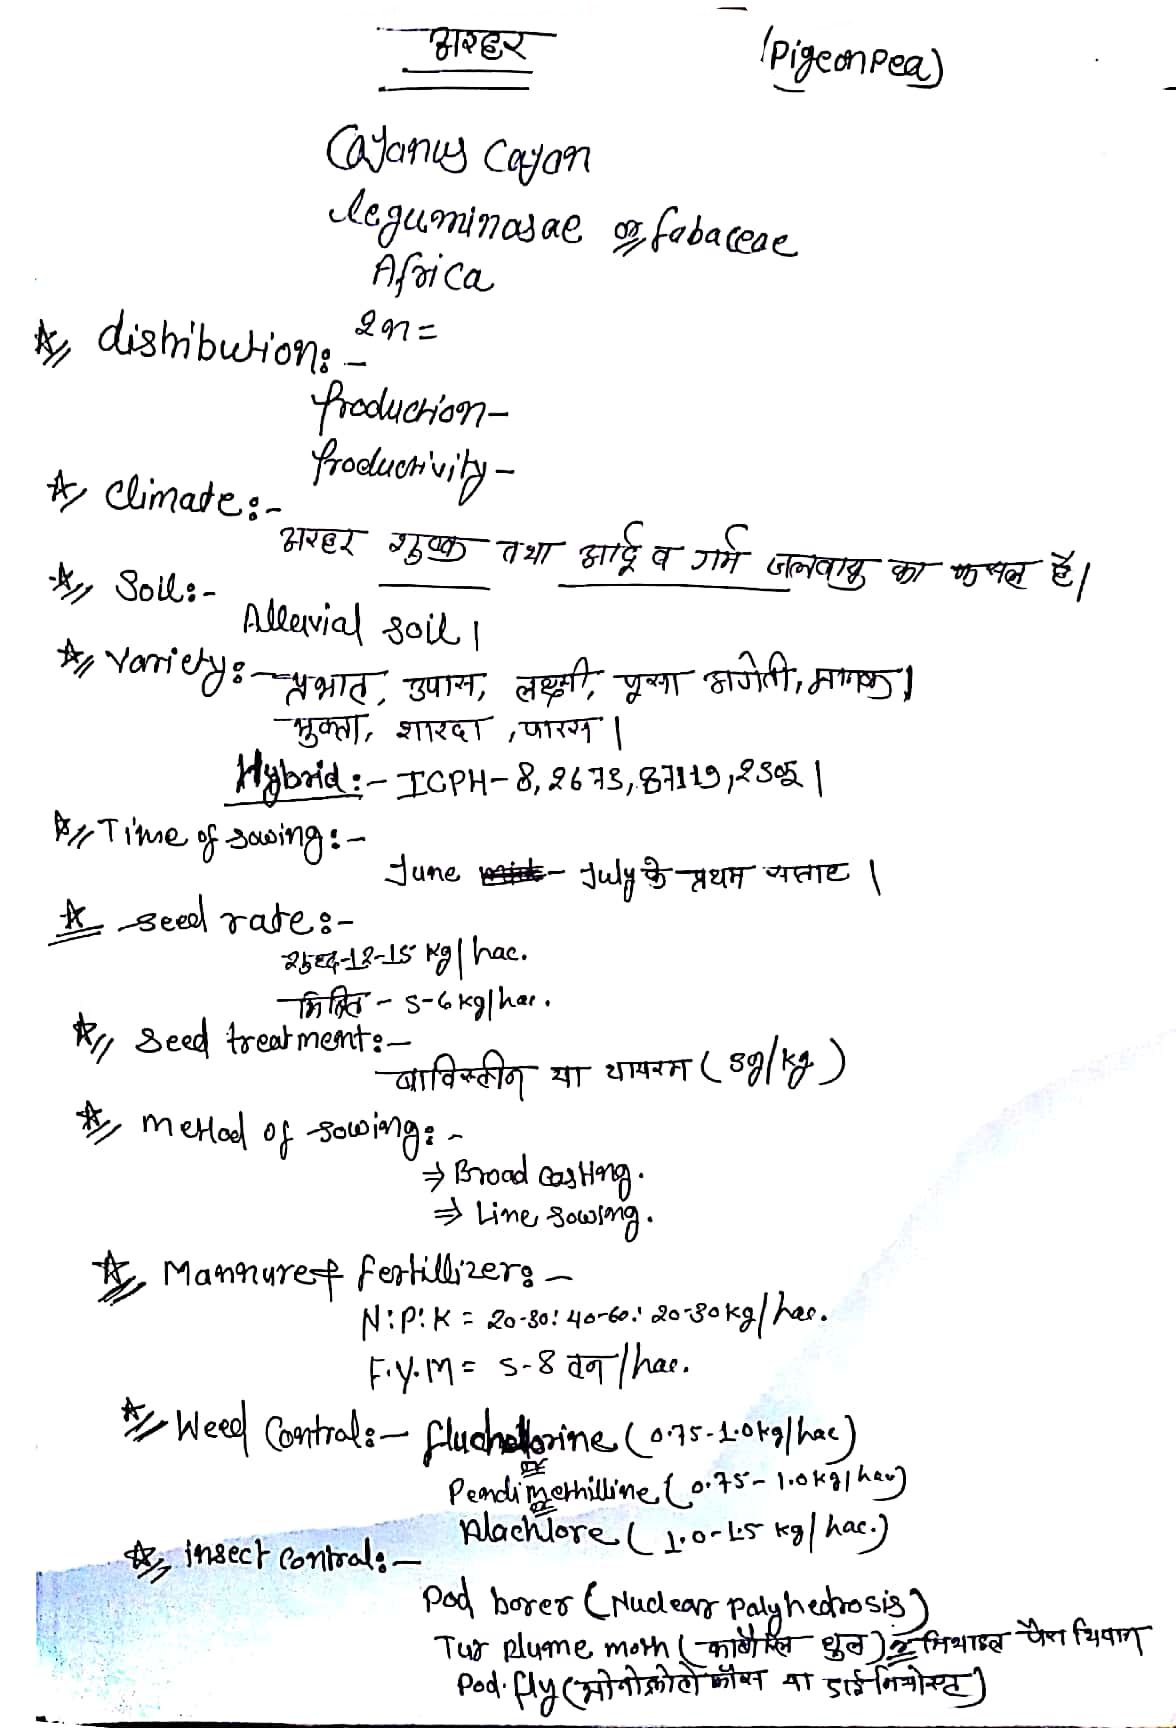 अरहर (Pigeonpea)
Cajanus Cajan
leguminasae or fabaceae
Africa
2n =
☆ distribution: -
Production -
Productivity -
☆ Climate: -
अरहर शुष्क तथा आर्द्र व गर्म जलवायु का फसल है।
☆ Soil: -
Alluvial soil।
☆ Variety: - प्रभात, उपास, लक्ष्मी, पूसा अगेती, मानक।
मुक्ता, शारदा, पारस।
Hybrid: - ICPH-8, 2673, 87119, 2305।
☆ Time of sowing: -
June - July के प्रथम सप्ताह।
☆ seed rate: -
शुद्ध-12-15 kg/hac.
मिश्रित - 5-6 kg/hac.
☆ Seed treatment: -
बाविस्टीन या थायरम (3g/kg)
☆ Method of sowing: -
⇒ Broad casting.
⇒ Line sowing.
☆ Mannure & fertillizer: -
N:P:K = 20-30: 40-60: 20-30 kg/hac.
F.Y.M = 5-8 टन/hac.
☆ Weed Control: - fluchlorine (0.75-1.0 kg/hac)
or
Pendimethilline (0.75-1.0 kg/hac)
or
Alachlore (1.0-1.5 kg/hac.)
☆ insect control: -
Pod borer (Nuclear Polyhedrosis)
Tur plume moth (कार्बेरिल धुल) or मिथाइल पैराथियान
Pod. fly (मोनोक्रोटोफॉस या डाईमिथोएट)